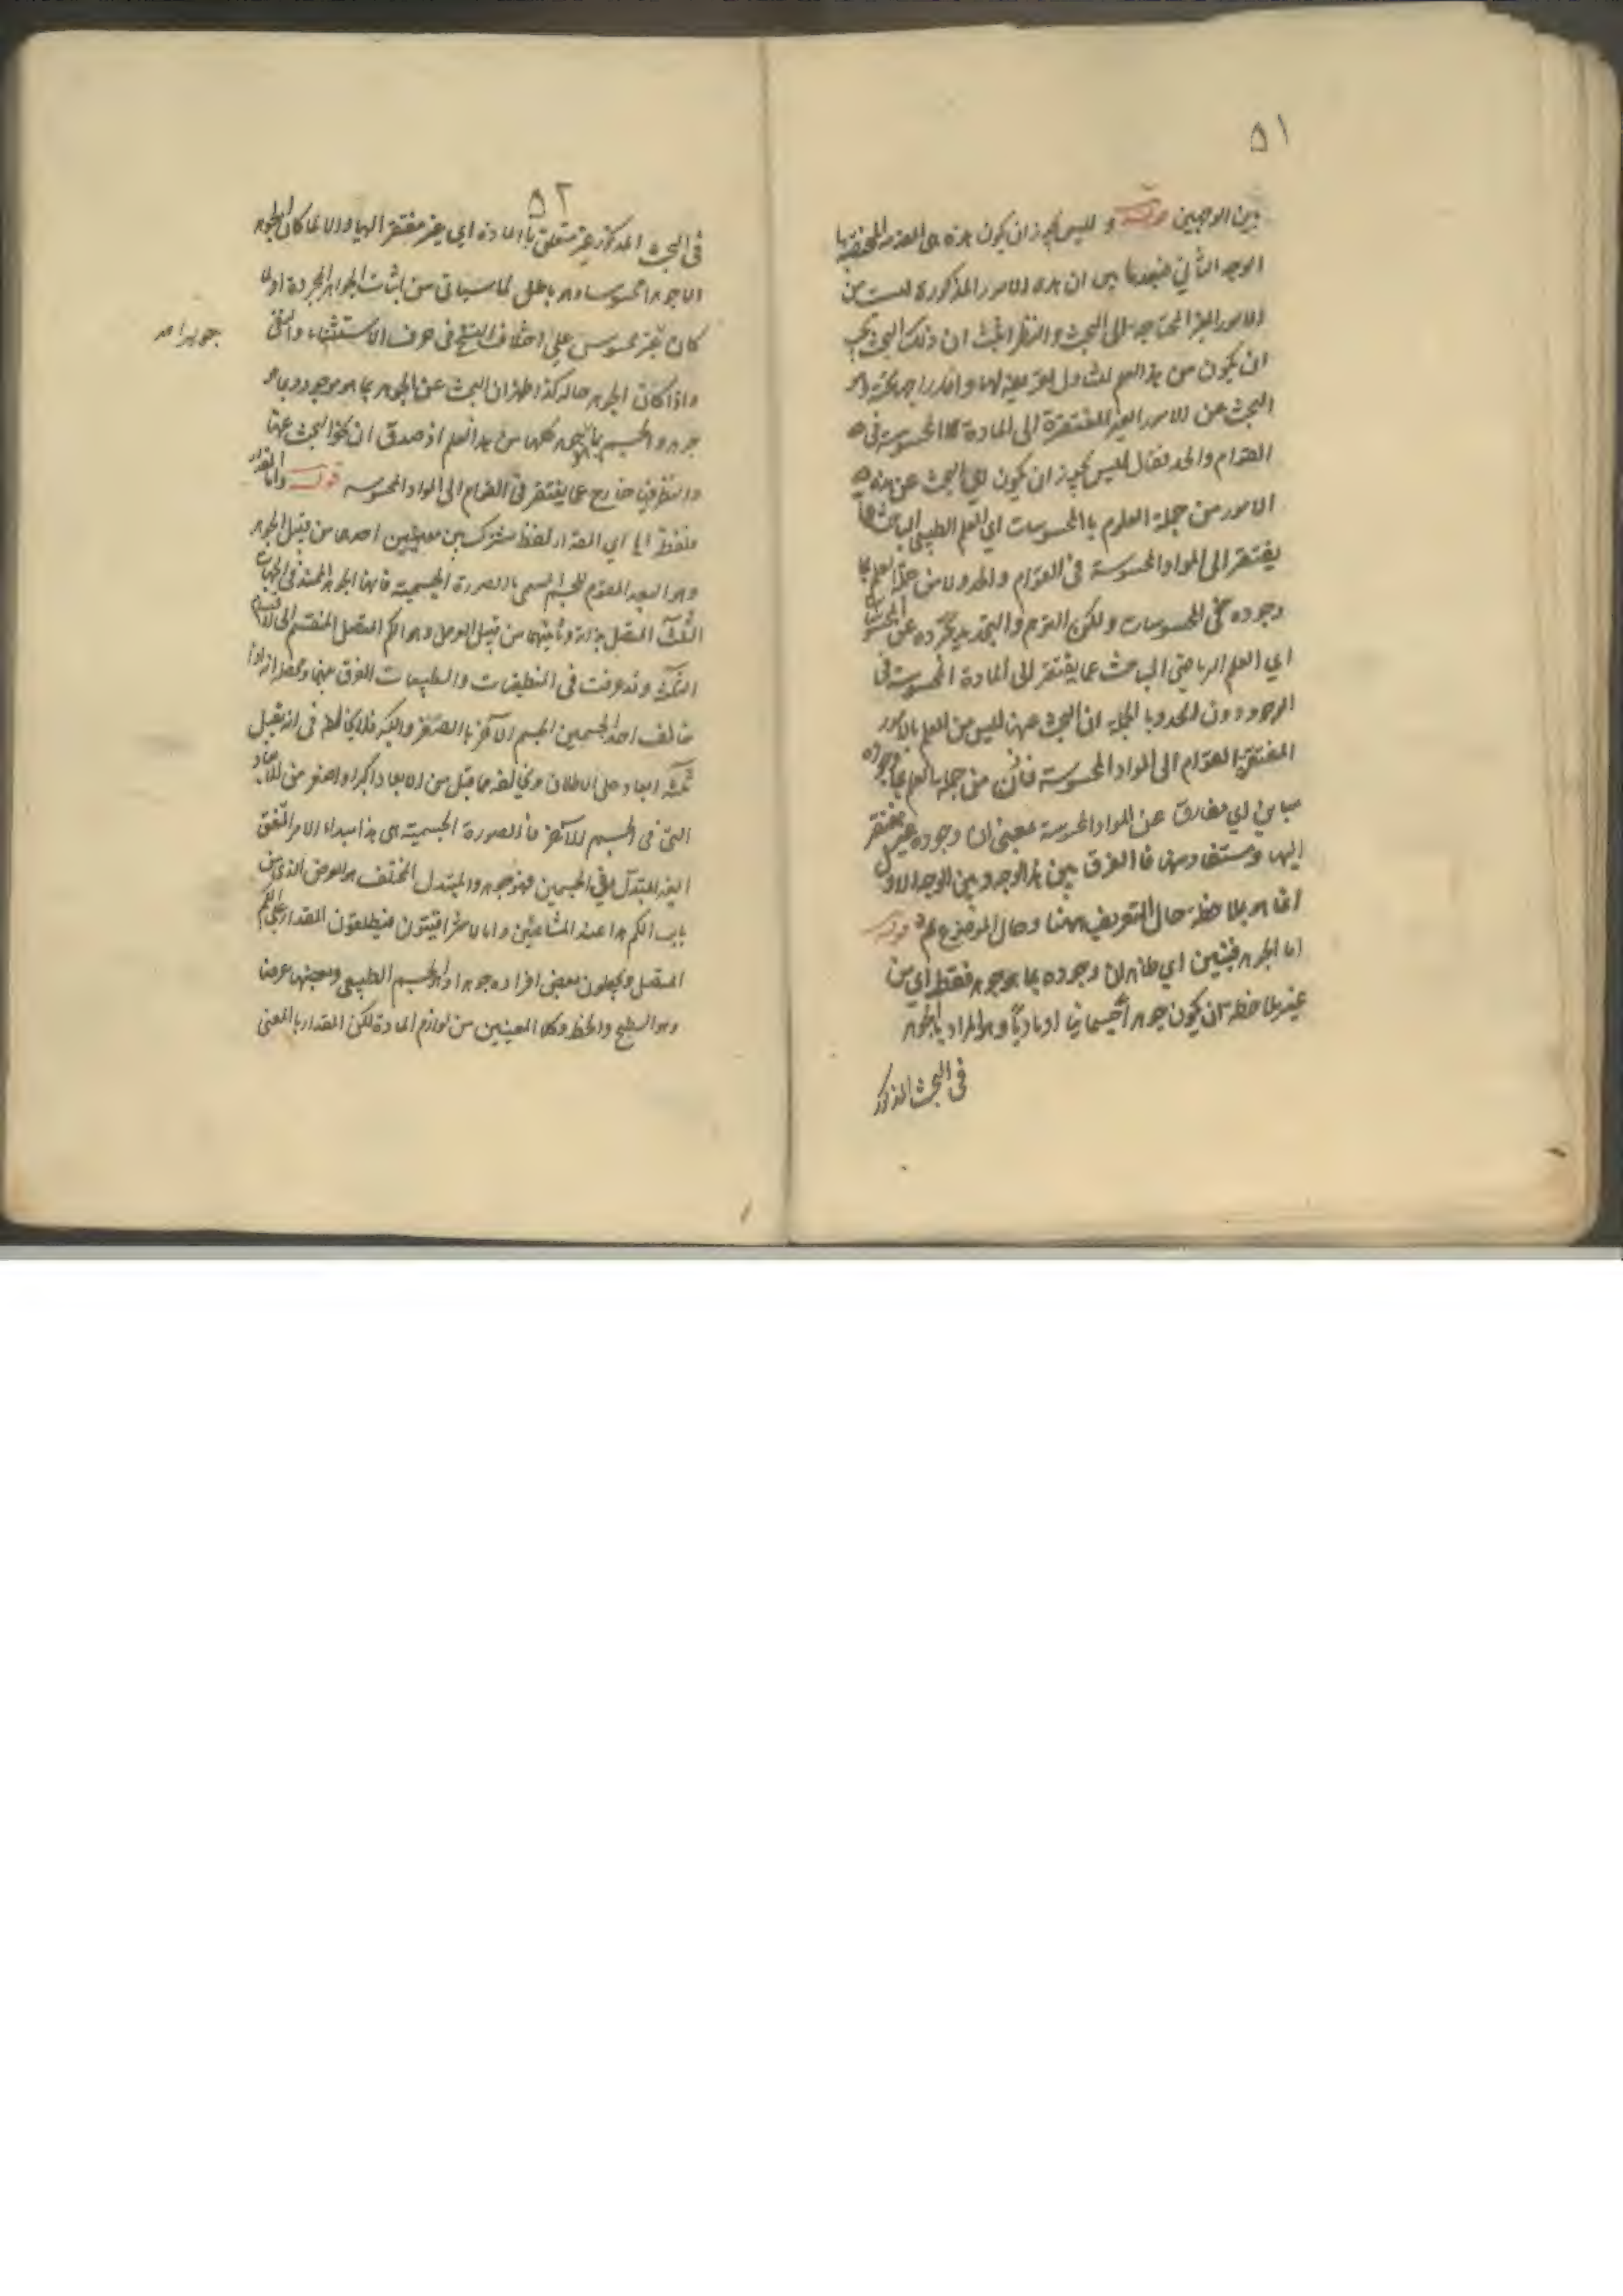 ٥١
بين الوجهين قوله و ليس يجوز ان يكون هذه هى المقدمة المختصة بها
الوجه الثاني فبعد ما بين ان هذه الامور المذكورة ليست من
الامور الغير المحتاجة الى البحث والنظر اثبت ان ذلك البحث يجب
ان يكون من هذا العلم لشمول تعريفه لها و اندراجه تحته وهو
البحث عن الامور الغير المفتقرة الى المادة المحسوسة فى
القوام والحد فقال ليس يجوز ان يكون اي البحث عن هذه
الامور من جملة العلوم بالمحسوسات اي العلم الطبيعى الباحث عما
يفتقر الى المواد المحسوسة فى القوام والحد ولا من جملة العلم بما
وجوده فى المحسوسات ولكن التوهم والتحديد يجرده عن المحسوسات
اي العلم الرياضي الباحث عما يفتقر الى المادة المحسوسة فى
الوجود دون الحد وبالجملة ان البحث عنها ليس من العلم بالامور
المفتقرة القوام الى المواد المحسوسة فاذن من جملة العلم بما وجوده
مباين اي مفارق عن المواد المحسوسة بمعنى ان وجوده غير مفتقر
اليها ومستفاد منها فالفرق بين هذا الوجه وبين الوجه الاول
انما هو بملاحظة حال التعريف ههنا وحال الموضوع ثمه قوله
اما الجوهر فبين اي ظاهر ان وجوده بما هو جوهر فقط اي من
غير ملاحظة ان يكون جوهرا جسمانيا او ماديا والمراد بالجوهر
فى البحث المذكور
٥٢
فى البحث المذكور غير متعلق بالمادة اي غير مفتقر اليها والا لما كان الجوهر
الا جوهرا محسوسا وهو باطل لما سيأتي من اثبات الجواهر المجردة او لما
كان غير محسوس على اختلاف النسخ فى حرف الاستثناء والنفى
جوهرا مه
واذا كانت الجوهر حاله كذا ظهر ان البحث عن الجوهر بما هو موجود وبما هو
جوهر والجسم بما هو جوهر كلها من هذا العلم اذ صدق ان نحو البحث عنها
والنظر فيها خارج عما يفتقر فى القوام الى المواد المحسوسه قوله واما المقدار
فلفظ اي المقدار لفظ مشترك بين معنيين احدهما من قبيل الجوهر
وهو البعد المقوم للجسم المسمى بالصورة الجسمية فانها الجوهر الممتد فى الجهات
الثلث المتصل بذاته وثانيهما من قبيل العرض وهو الكم المتصل المنقسم الى الاقسام
الثلثة وقد عرفت فى المنطقيات والطبيعيات الفرق بينهما ومحصله انه اذا
خالف احد الجسمين الجسم الآخر بالصغر والكبر فلا يخالفه فى انه يقبل
ثلثة ابعاد على الاطلاق ويخالفه بما قبل من الابعاد اكبر او اصغر من الابعاد
التى فى الجسم الآخر فالصورة الجسمية هى هذا مبداء الامر المتفق
الغير المبتدل فى الجسمين فهو جوهر والمبتدل المختلف هو العرض الذي من
باب الكم هذا عند المشائين واما الاشراقيون فيطلقون المقدار على الكم
المتصل ويجعلون بعض افراده جوهرا وهو الجسم الطبيعى وبعضها عرضا
وهو السطح والخط وكلا المعنيين من لوازم المادة لكن المقدار بالمعنى